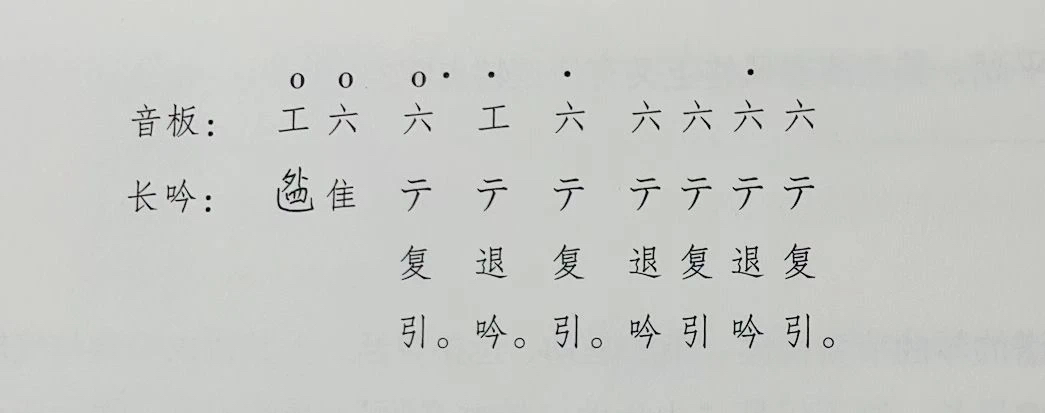 o o o· · · ·
音板： 工 六 六 工 六 六 六 六 六
长吟： 隹 亍 亍 亍 亍 亍 亍 亍
复 退 复 退 复 退 复
引。吟。引。吟 引 吟 引。